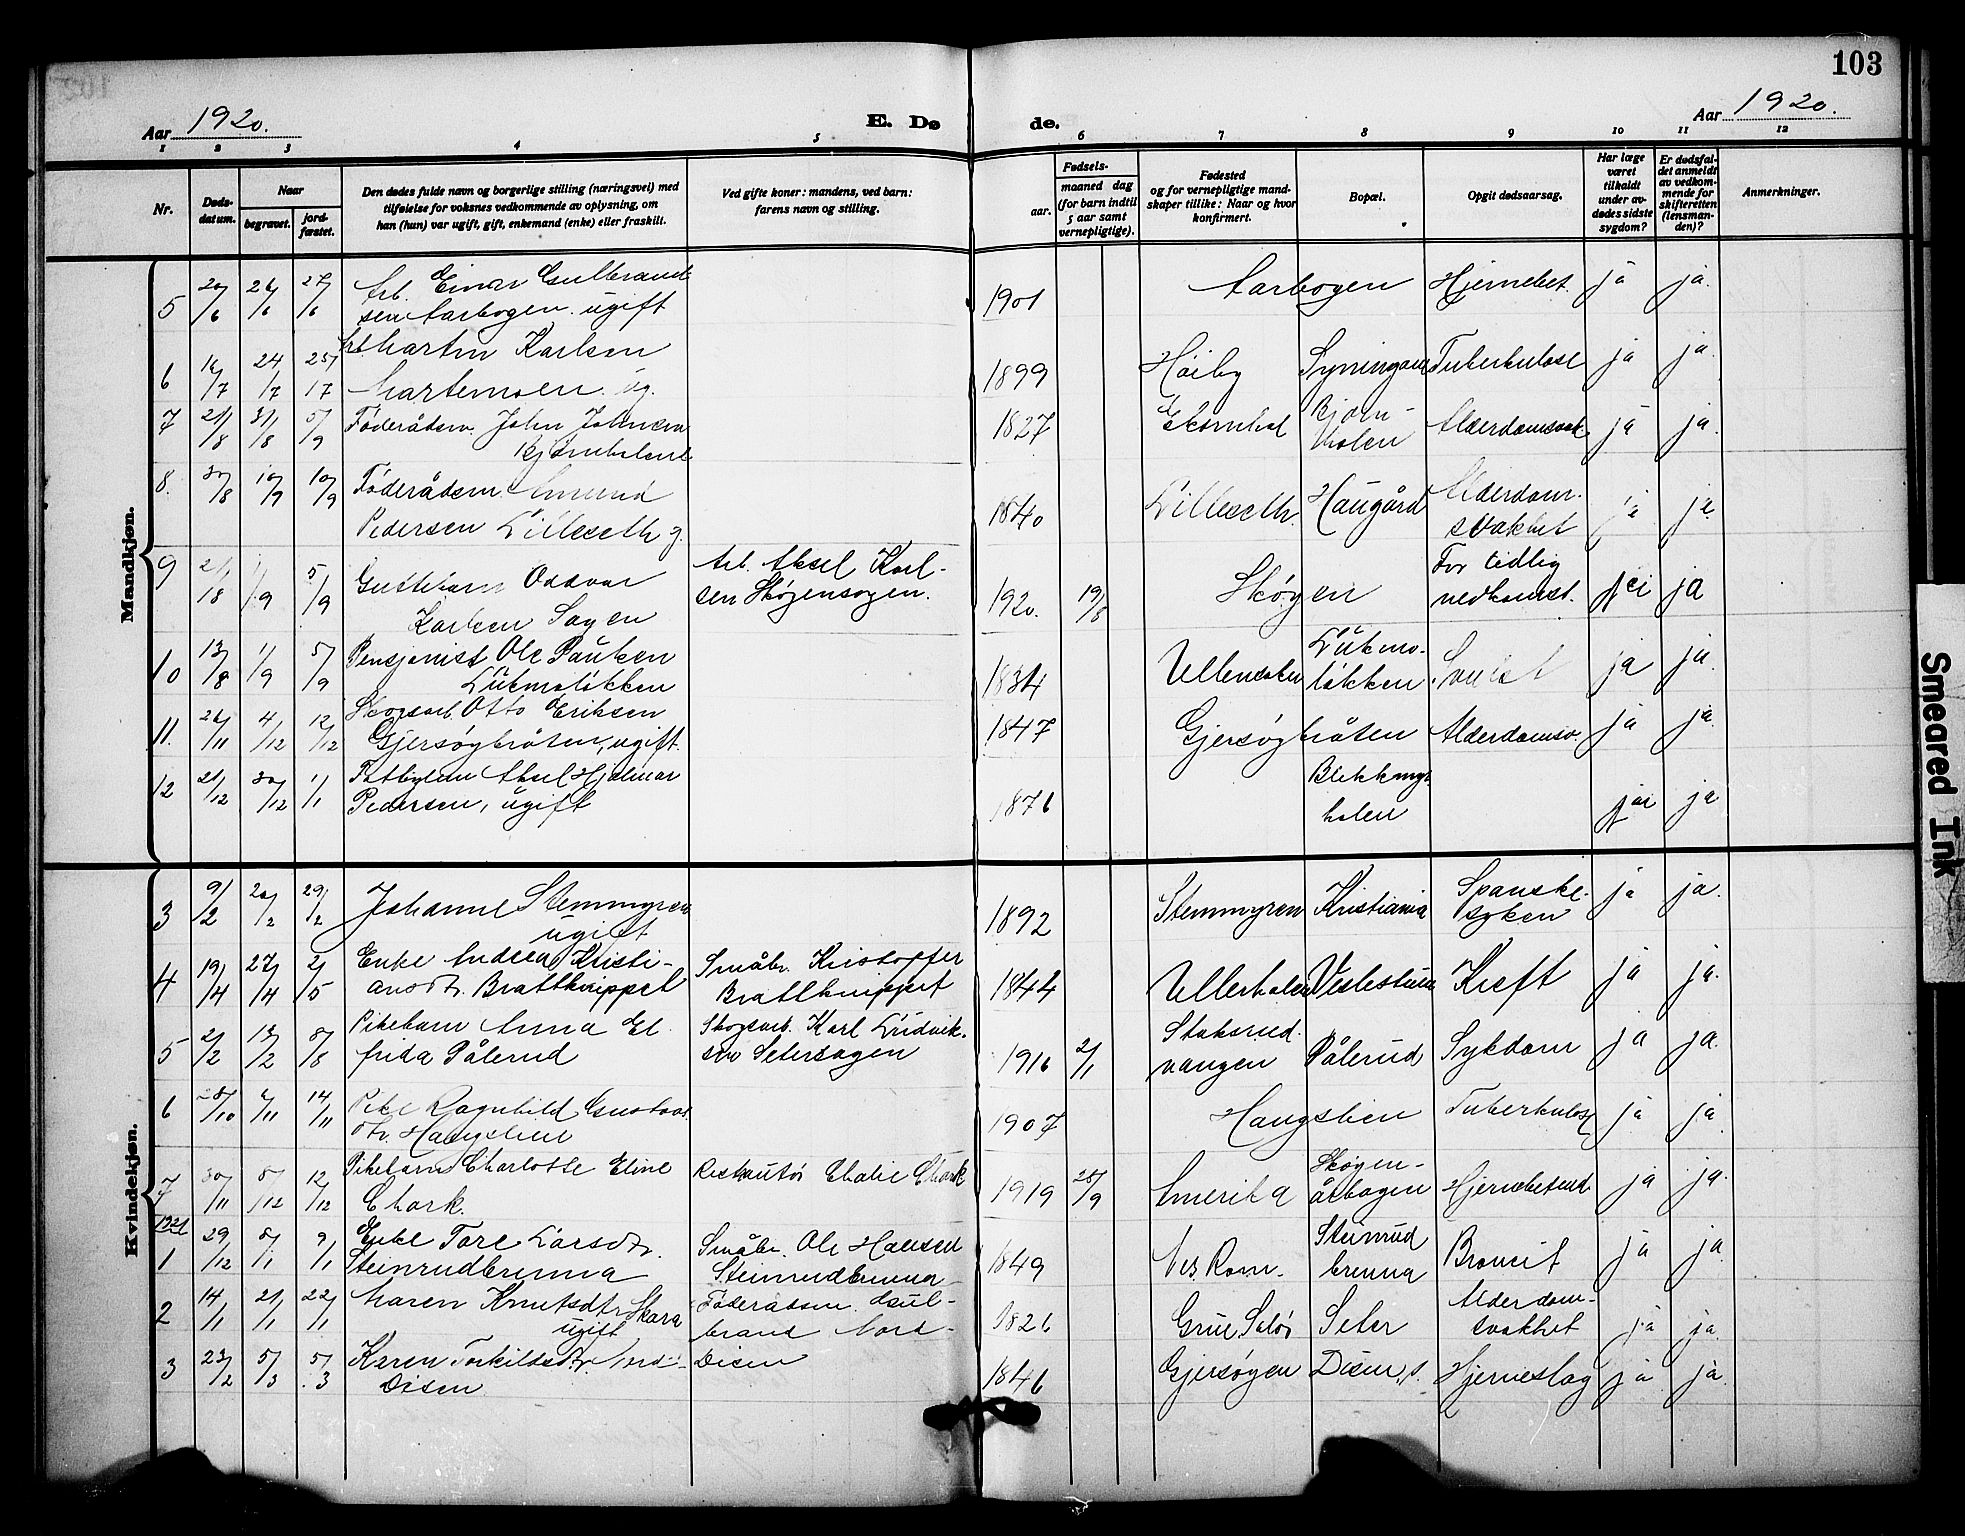 103
Aar 1920.
E. Dø
de.
Aar 1920.
1 2 3 4 5 6 7 8 9 10 11 12
Nr.
Døds-
datum.
Naar
begravet.
jord-
fæstet.
Den dødes fulde navn og borgerlige stilling (næringsvei) med
tilføielse for voksnes vedkommende av oplysning, om
han (hun) var ugift, gift, enkemand (enke) eller fraskilt.
Ved gifte koner: mandens, ved barn:
farens navn og stilling.
Fødsels-
aar.
maaned dag
(for barn indtil
5 aar samt
vernepligtige).
Fødested
og for vernepligtige mand-
skaper tillike: Naar og hvor
konfirmert.
Bopæl.
Opgit dødsaarsag.
Har læge
været
tilkaldt
under av-
dødes sidste
sygdom?
Er dødsfal-
det anmeldt
av vedkom-
mende for
skifteretten
(lensman-
den)?
Anmerkninger.
Mandkjøn.
5 20/6 26/6 27/6 Arb. Einar Gulbrand-
sen Aarbogen. ugift 1901 Aarbogen Hjernebet. ja ja.
6 16/7 24/7 25/7 Arb Martin Karlsen
Martemoen. ug. 1899 Høiby Tuberkulose ja ja.
7 21/8 31/8 5/9 Føderådsm. John Johnsen
Bjørnholen 1827 Bjørn-
holen Alderdomssvak. ja ja.
8. 30/8 10/9 10/9 Føderådsm. Amund
Pedersen Lilleseth g. 1840 Lilleseth. Haugård Alderdom.
svakhet ja ja
9 21/8 1/9 5/9 Guttebarn Oddvar
Karlsen Sagen Arb. Aksel Karl-
sen Skøgensagen. 1920. 19/8 Skøgen For tidlig
nedkomst. nei ja
10 13/8 1/9 5/9 Pensjonist Ole Paulsen
Lukmoløkken 1834 Ullensaker Lukmo-
løkken. ja ja.
11. 26/11 4/12 12/12 Skogsarb. Otto Eriksen
Gjersøybråten, ugift. 1847 Gjersøybråten Alderdomsv. ja ja.
12 21/12 30/12 1/1 Aksel Hjalmar
Pedersen, ugift 1876 Blekkmyr-
holen ja
Kvindekjøn.
3 9/2 20/2 29/2 Johanne Stemmyren
ugift 1892 Stemmyren Kristiania Spanske-
syken ja ja.
4 19/4 27/4 2/5 Enke Andrea Kristi-
ansdtr. Brattknippet Småbr. Kristoffer
Brattknippet 1844 Ullerholen Veslestuen Kreft ja ja.
5 2/2 13/2 8/8 Pikebarn Anna El-
frida Pålerud Skogsarb. Karl Ludvik-
sen Setersagen 1916 2/1 Staksrud-
vangen Pålerud Sykdom ja ja.
6 28/10 6/11 14/11 Pike Ragnhild Gustavs-
dtr. Haugslien 1907 Haugslien Tuberkulose ja ja.
7 30/11 8/12 12/12 Pikebarn Charlotte Eline
Chark. Chalie Chark 1919 25/9 Amerika Skøgen-
årbogen Hjernebetend ja ja.
1921
1 29/12 8/1 9/1 Enke Tore Larsdtr.
Steinrudbrenna Småbr. Ole Hansen
Steinrudbrenna 1849 Nes Rom. Steinrud
brenna Broncit ja ja
2 14/1 21/1 22/1 Maren Knutsdtr. Skara
ugift Føderådsm. Gul-
brand Nord- 1826 Grue, Solør Seter Alderdom-
svakhet ja ja.
3 23/2 5/3 5/3 Karen Torkildsdtr. Nord-
Disen Disen 1846 Gjersøyen Disen, s. Hjerneslag ja ja.
Smeared Ink